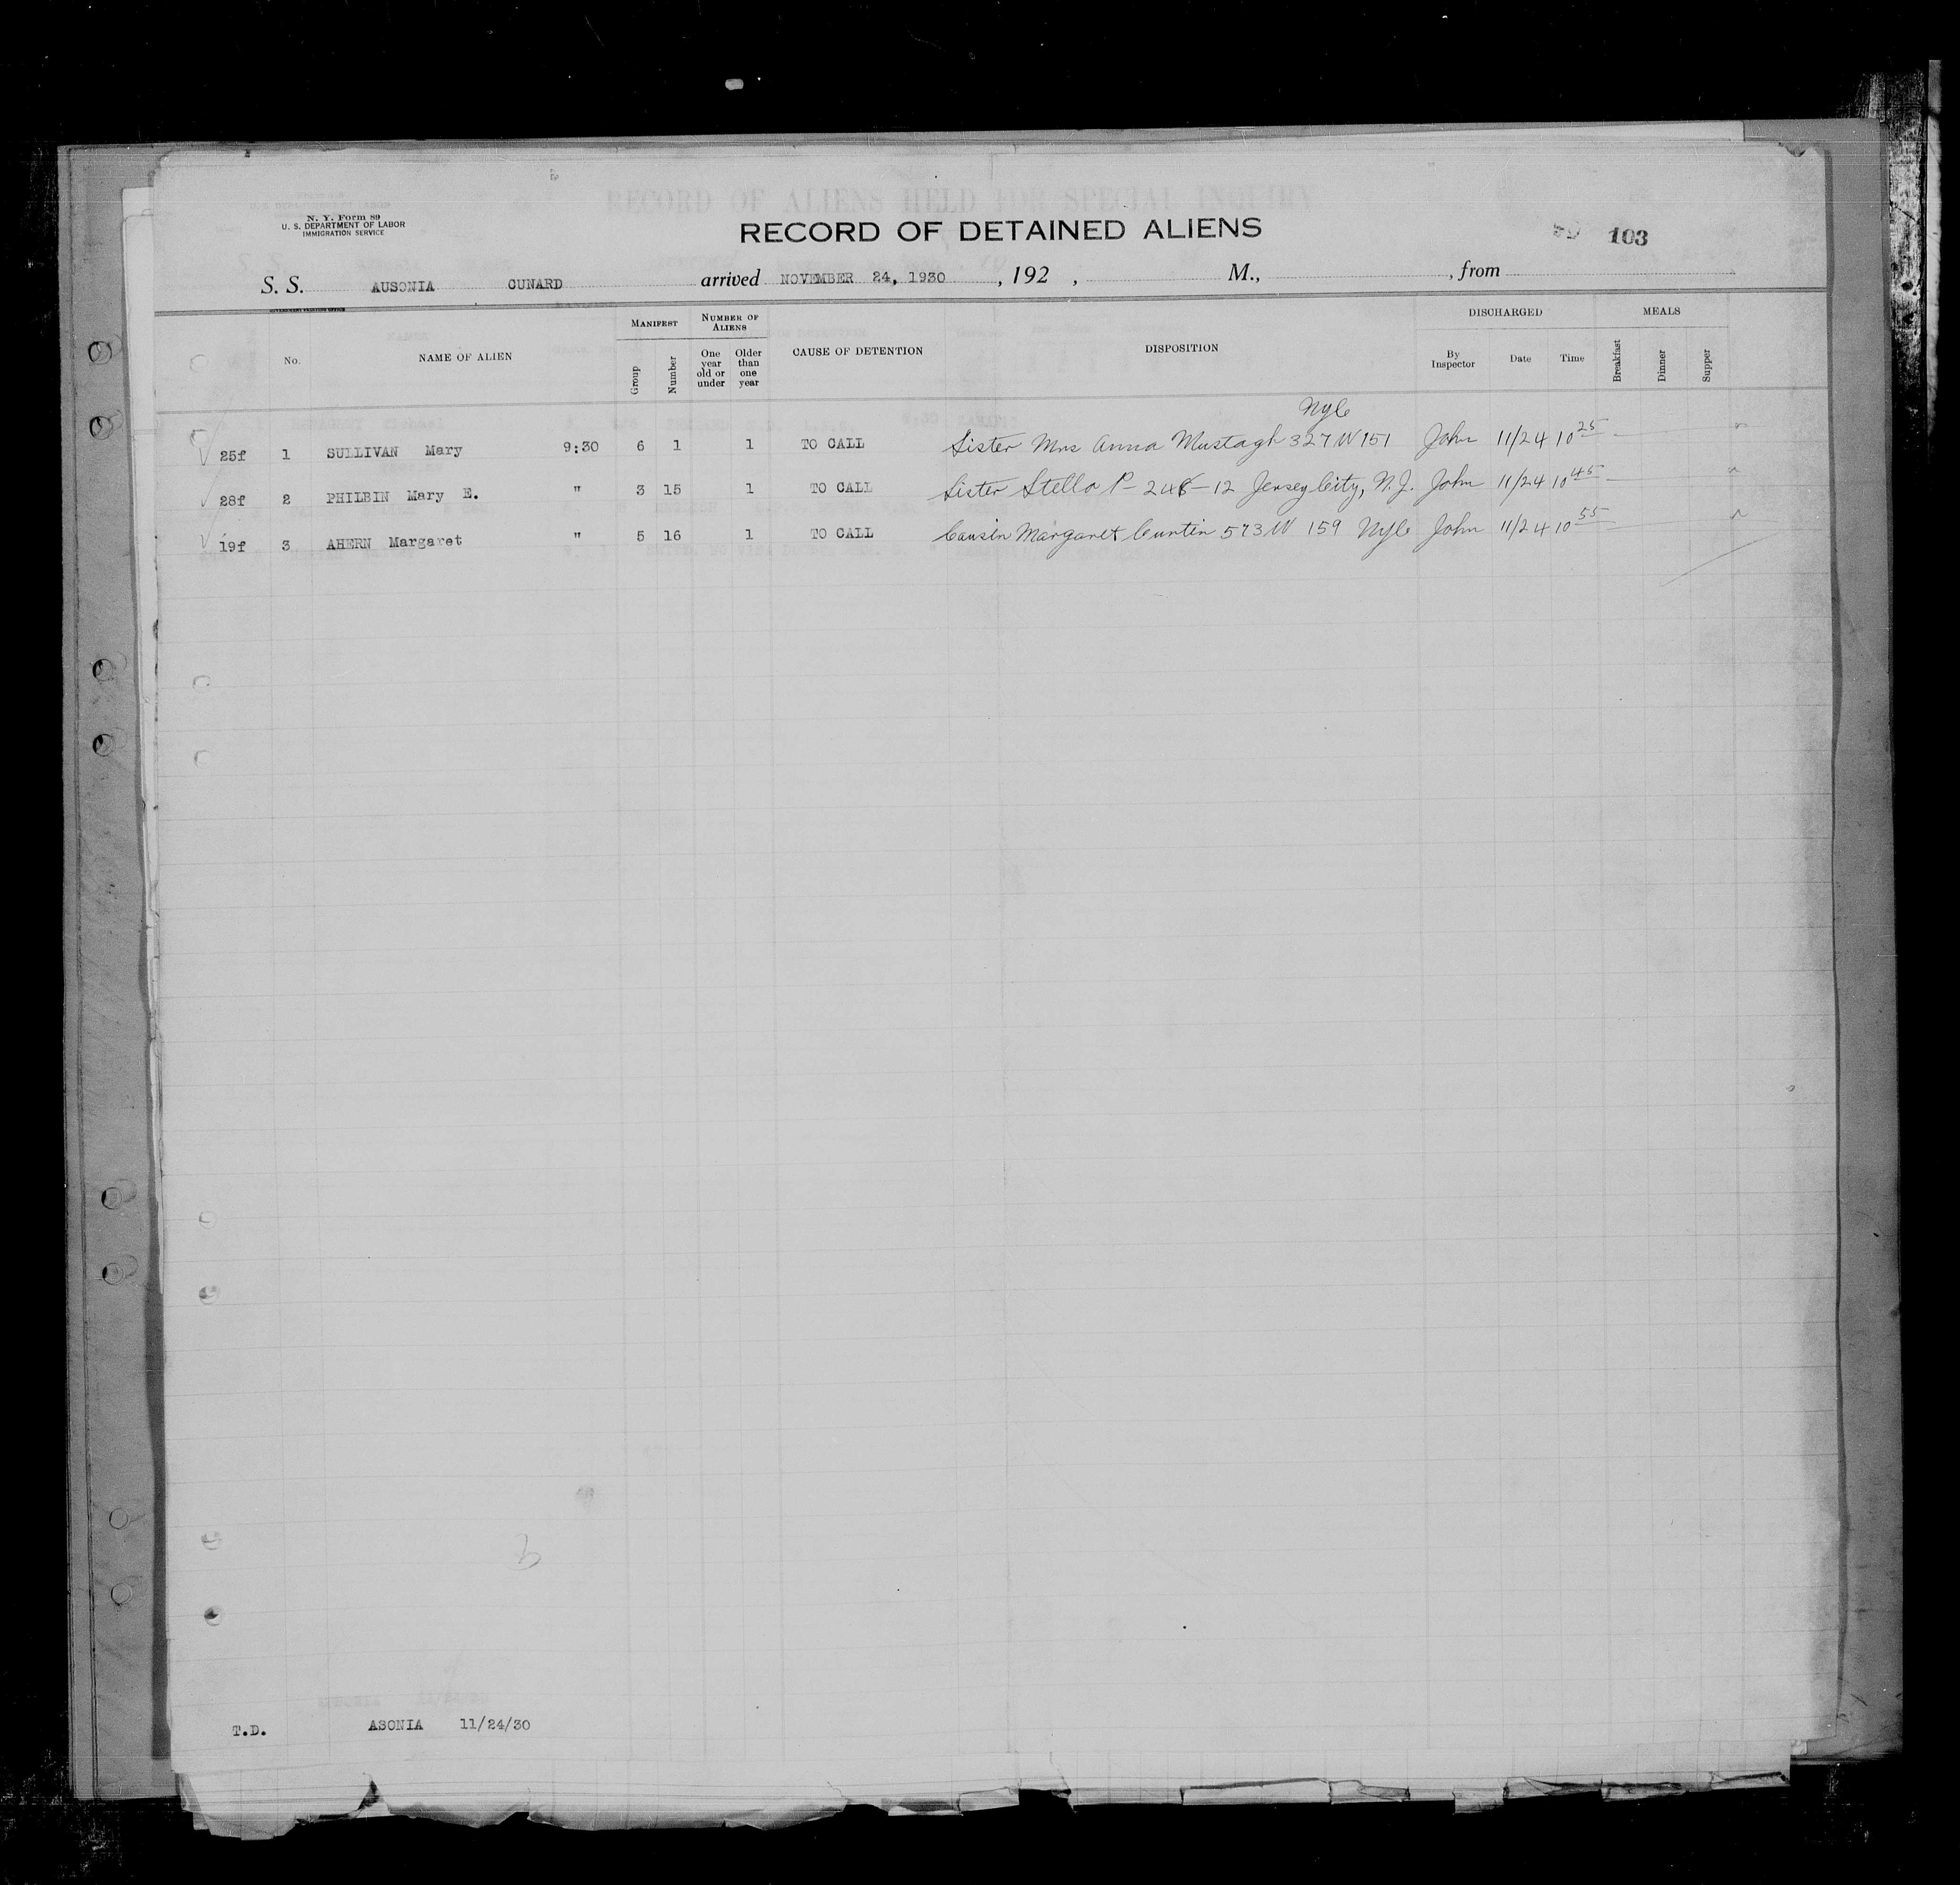 N. Y. Form 89
U. S. DEPARTMENT OF LABOR
IMMIGRATION SERVICE
RECORD OF ALIENS HELD FOR SPECIAL INQUIRY
RECORD OF DETAINED ALIENS
103
S. S. AUSONIA CUNARD arrived NOVEMBER 24, 1930 , 192 , M., , from
GOVERNMENT PRINTING OFFICE
No. NAME OF ALIEN MANIFEST Group Number NUMBER OF ALIENS One year old or under Older than one year CAUSE OF DETENTION DISPOSITION DISCHARGED By Inspector Date Time MEALS Breakfast Dinner Supper
NYC
25f 1 SULLIVAN Mary 9:30 6 1 1 TO CALL Sister Mrs Anna Mustagh 327 W 151 John 11/24 10 25 —
28f 2 PHILBIN Mary E. " 3 15 1 TO CALL Sister Stella P — 12 Jersey City, N.J. John 11/24 10 45 —
19f 3 AHERN Margaret " 5 16 1 TO CALL Cousin Margaret Cuntin 573 W 159 NYC John 11/24 10 55 —
T.D. ASONIA 11/24/30